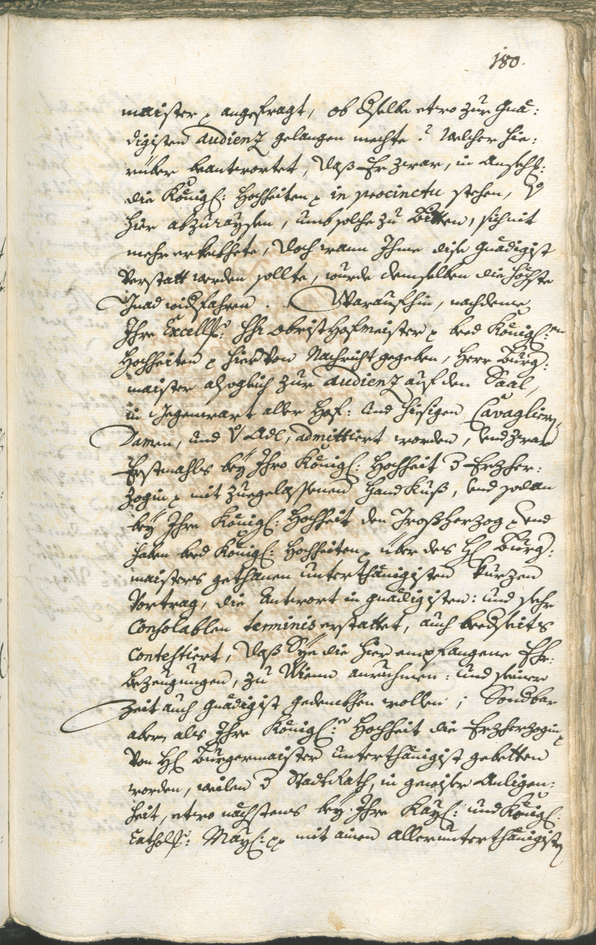 180.
maister p angefragt, ob dselbe etwo zur Gnä:
digisten audienz gelangen mechte? Welcher hie:
rüber beantwortet, daß Er zwar, in Ansech:
die Königl: Hochheiten p in procinctu stehen,
hier abzuraysen, umb solche zu bitten, sich nit
mehr erkekhete, doch wann Ihme dise gnädigist
verstatt werden sollte, wurde demselben die höchste
Gnad widfahren. Woraufhin, nachdeme
Ihre Excell: H: obrist Hofmeister p bed Königl:en
Hochheiten p hievon Nachricht gegeben, Herr Burg:
maister alsogleich zur audienz auf den Saal,
in Gegenwart aller Hof: und hiesigen Cavaglier,
Damen, und V Adl, admittiert worden, und zwar
Erstmahls bey Ihro Königl: Hochheit d Erzher:
zogin p mit zuegelassenen Handkuß, und sodan
bey Ihre Königl: Hochheit den Großherzog p und
haben bed Königl: Hochheiten p über des H: Burg:
maisters gethanen unterthänigisten kurzen
Vortrag, die Antwort in gnädigisten: und sehr
Consolablen terminis erstattet, auch bedseits
Contestiert, daß Sye die hier empfangene Ehr:
bezeugungen, zu Wienn anruehmen: und seiner
Zeit auch gnädigist gedenkhen wollen; Sonderbar
aber, als Ihre Königl: Hochheit die Erzherzogin p
von H: Burgermaister unterthänigist gebetten
worden, weilen d StadtRath, in gewiser Anligen:
heit, etwo nächstens bey Ihre Kay: und Königl:
Cathol: May: pp mit ainen allerunterthänigisten